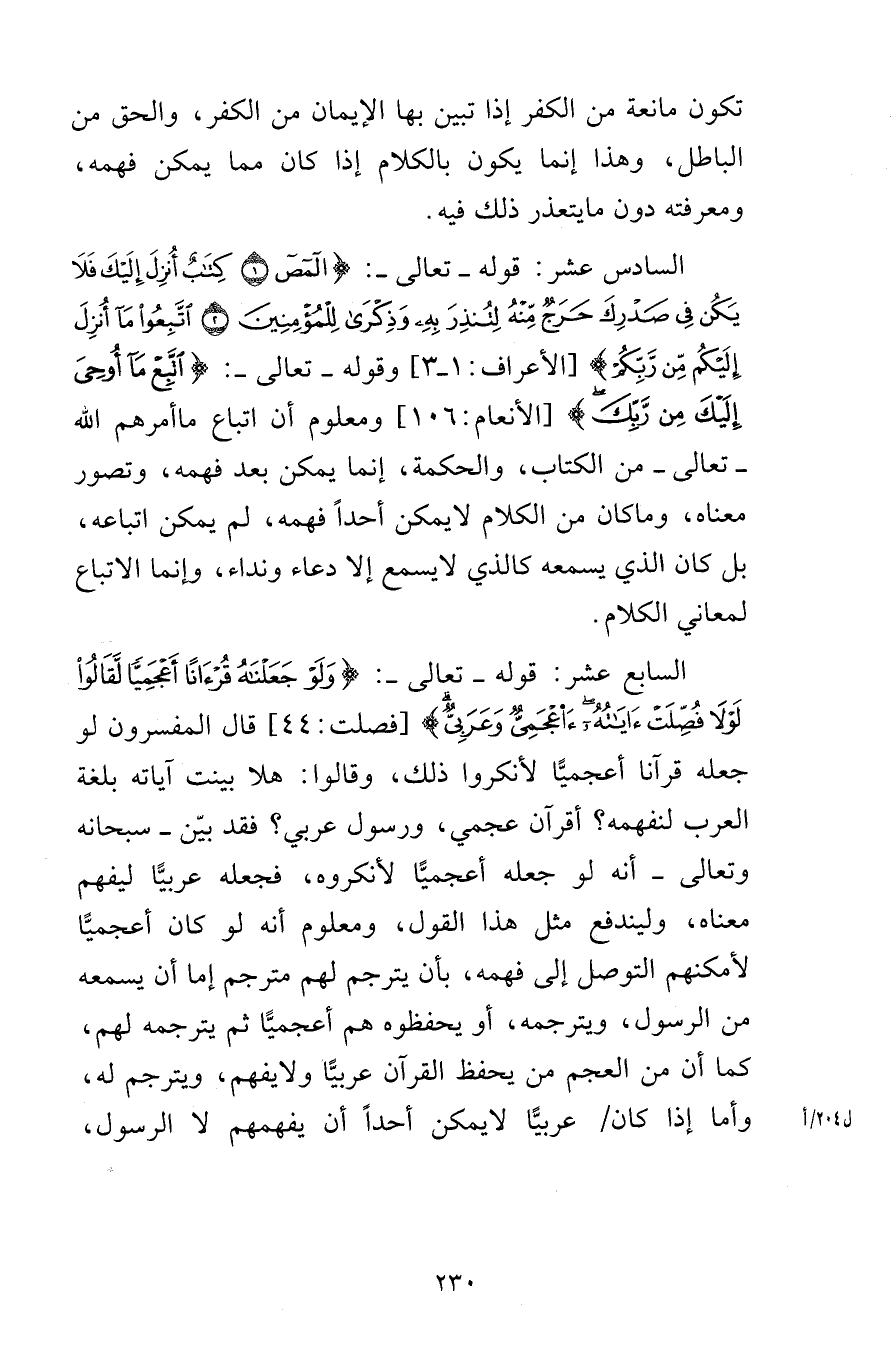 تكون مانعة من الكفر إذا تبين بها الإيمان من الكفر، والحق من
الباطل، وهذا إنما يكون بالكلام إذا كان مما يمكن فهمه،
ومعرفته دون مايتعذر ذلك فيه.
السادس عشر: قوله ـ تعالى ـ: ﴿الٓمٓصٓ ١ كِتَٰبٌ أُنزِلَ إِلَيْكَ فَلَا
يَكُن فِى صَدْرِكَ حَرَجٌ مِّنْهُ لِتُنذِرَ بِهِۦ وَذِكْرَىٰ لِلْمُؤْمِنِينَ ٢ ٱتَّبِعُوا۟ مَآ أُنزِلَ
إِلَيْكُم مِّن رَّبِّكُمْ﴾ [الأعراف: ١ـ٣] وقوله ـ تعالى ـ: ﴿ٱتَّبِعْ مَآ أُوحِىَ
إِلَيْكَ مِن رَّبِّكَ ۖ﴾ [الأنعام: ١٠٦] ومعلوم أن اتباع ماأمرهم الله
ـ تعالى ـ من الكتاب، والحكمة، إنما يمكن بعد فهمه، وتصور
معناه، وماكان من الكلام لايمكن أحداً فهمه، لم يمكن اتباعه،
بل كان الذي يسمعه كالذي لايسمع إلا دعاء ونداء، وإنما الاتباع
لمعاني الكلام.
السابع عشر: قوله ـ تعالى ـ: ﴿وَلَوْ جَعَلْنَٰهُ قُرْءَانًا أَعْجَمِيًّا لَّقَالُوا۟
لَوْلَا فُصِّلَتْ ءَايَٰتُهُۥٓ ۖ ءَا۬عْجَمِىٌّ وَعَرَبِىٌّ ۗ﴾ [فصلت: ٤٤] قال المفسرون لو
جعله قرآنا أعجميًّا لأنكروا ذلك، وقالوا: هلا بينت آياته بلغة
العرب لنفهمه؟ أقرآن عجمي، ورسول عربي؟ فقد بيّن ـ سبحانه
وتعالى ـ أنه لو جعله أعجميًّا لأنكروه، فجعله عربيًّا ليفهم
معناه، وليندفع مثل هذا القول، ومعلوم أنه لو كان أعجميًّا
لأمكنهم التوصل إلى فهمه، بأن يترجم لهم مترجم إما أن يسمعه
من الرسول، ويترجمه، أو يحفظوه هم أعجميًّا ثم يترجمه لهم،
كما أن من العجم من يحفظ القرآن عربيًّا ولايفهم، ويترجم له،
وأما إذا كان/ عربيًّا لايمكن أحداً أن يفهمهم لا الرسول،
ل٢٠٤/أ
٢٣٠